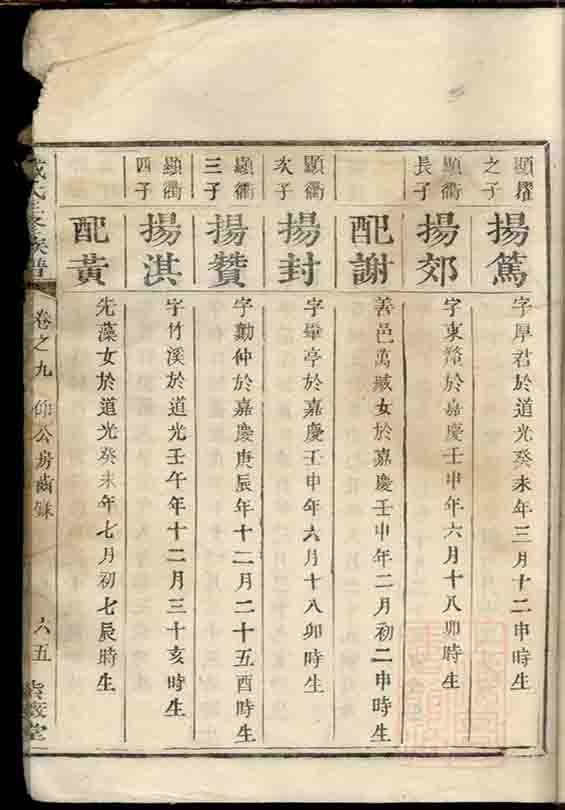 顯擢之子
揚篤
字厚君於道光癸未年三月十二申時生
顯衢長子
揚郊
字東犛於嘉慶壬申年六月十八卯時生
配謝
善邑萬臧女於嘉慶壬申年二月初二申時生
顯衢次子
揚封
字華亭於嘉慶壬申年六月十八卯時生
顯衢三子
揚贊
字勷仲於嘉慶庚辰年十二月二十五酉時生
顯衢四子
揚淇
字竹溪於道光壬午年十二月三十亥時生
配黃
先藻女於道光癸未年七月初七辰時生
氏三修族譜
卷之九
仰公房齒錄
六五
堂